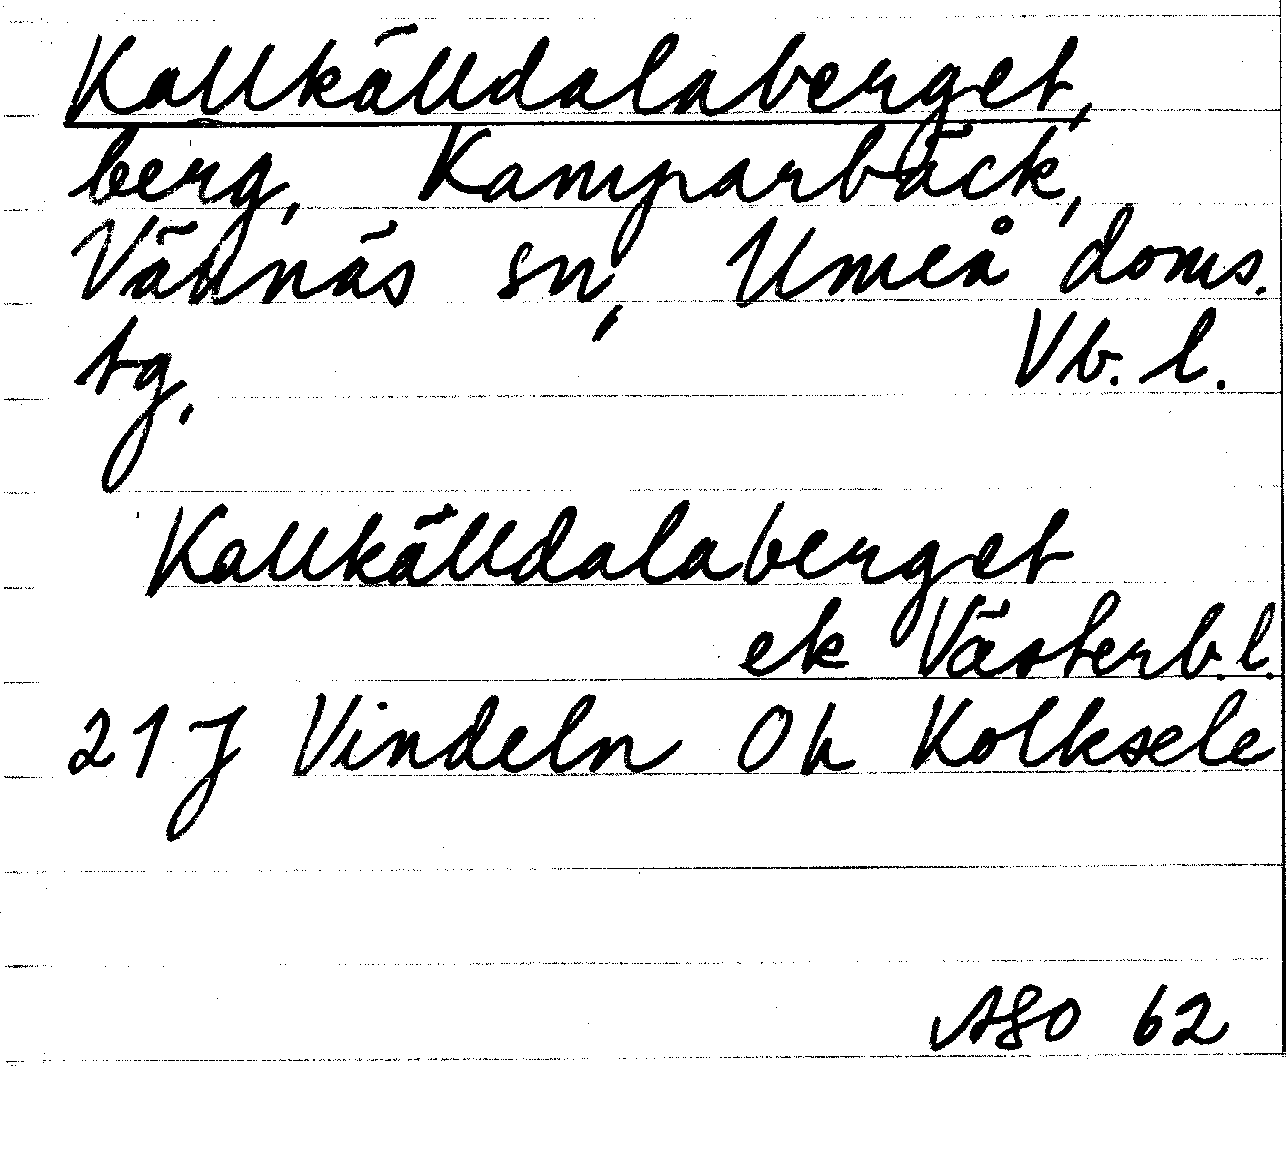 Kallkälldalaberget,
berg, Kamparbäck,
Vännäs sn, Umeå doms.
tg. Vb. l.
Kallkälldalaberget
ek Västerb. l.
21 J Vindeln Oh Kolksele
ASO 62